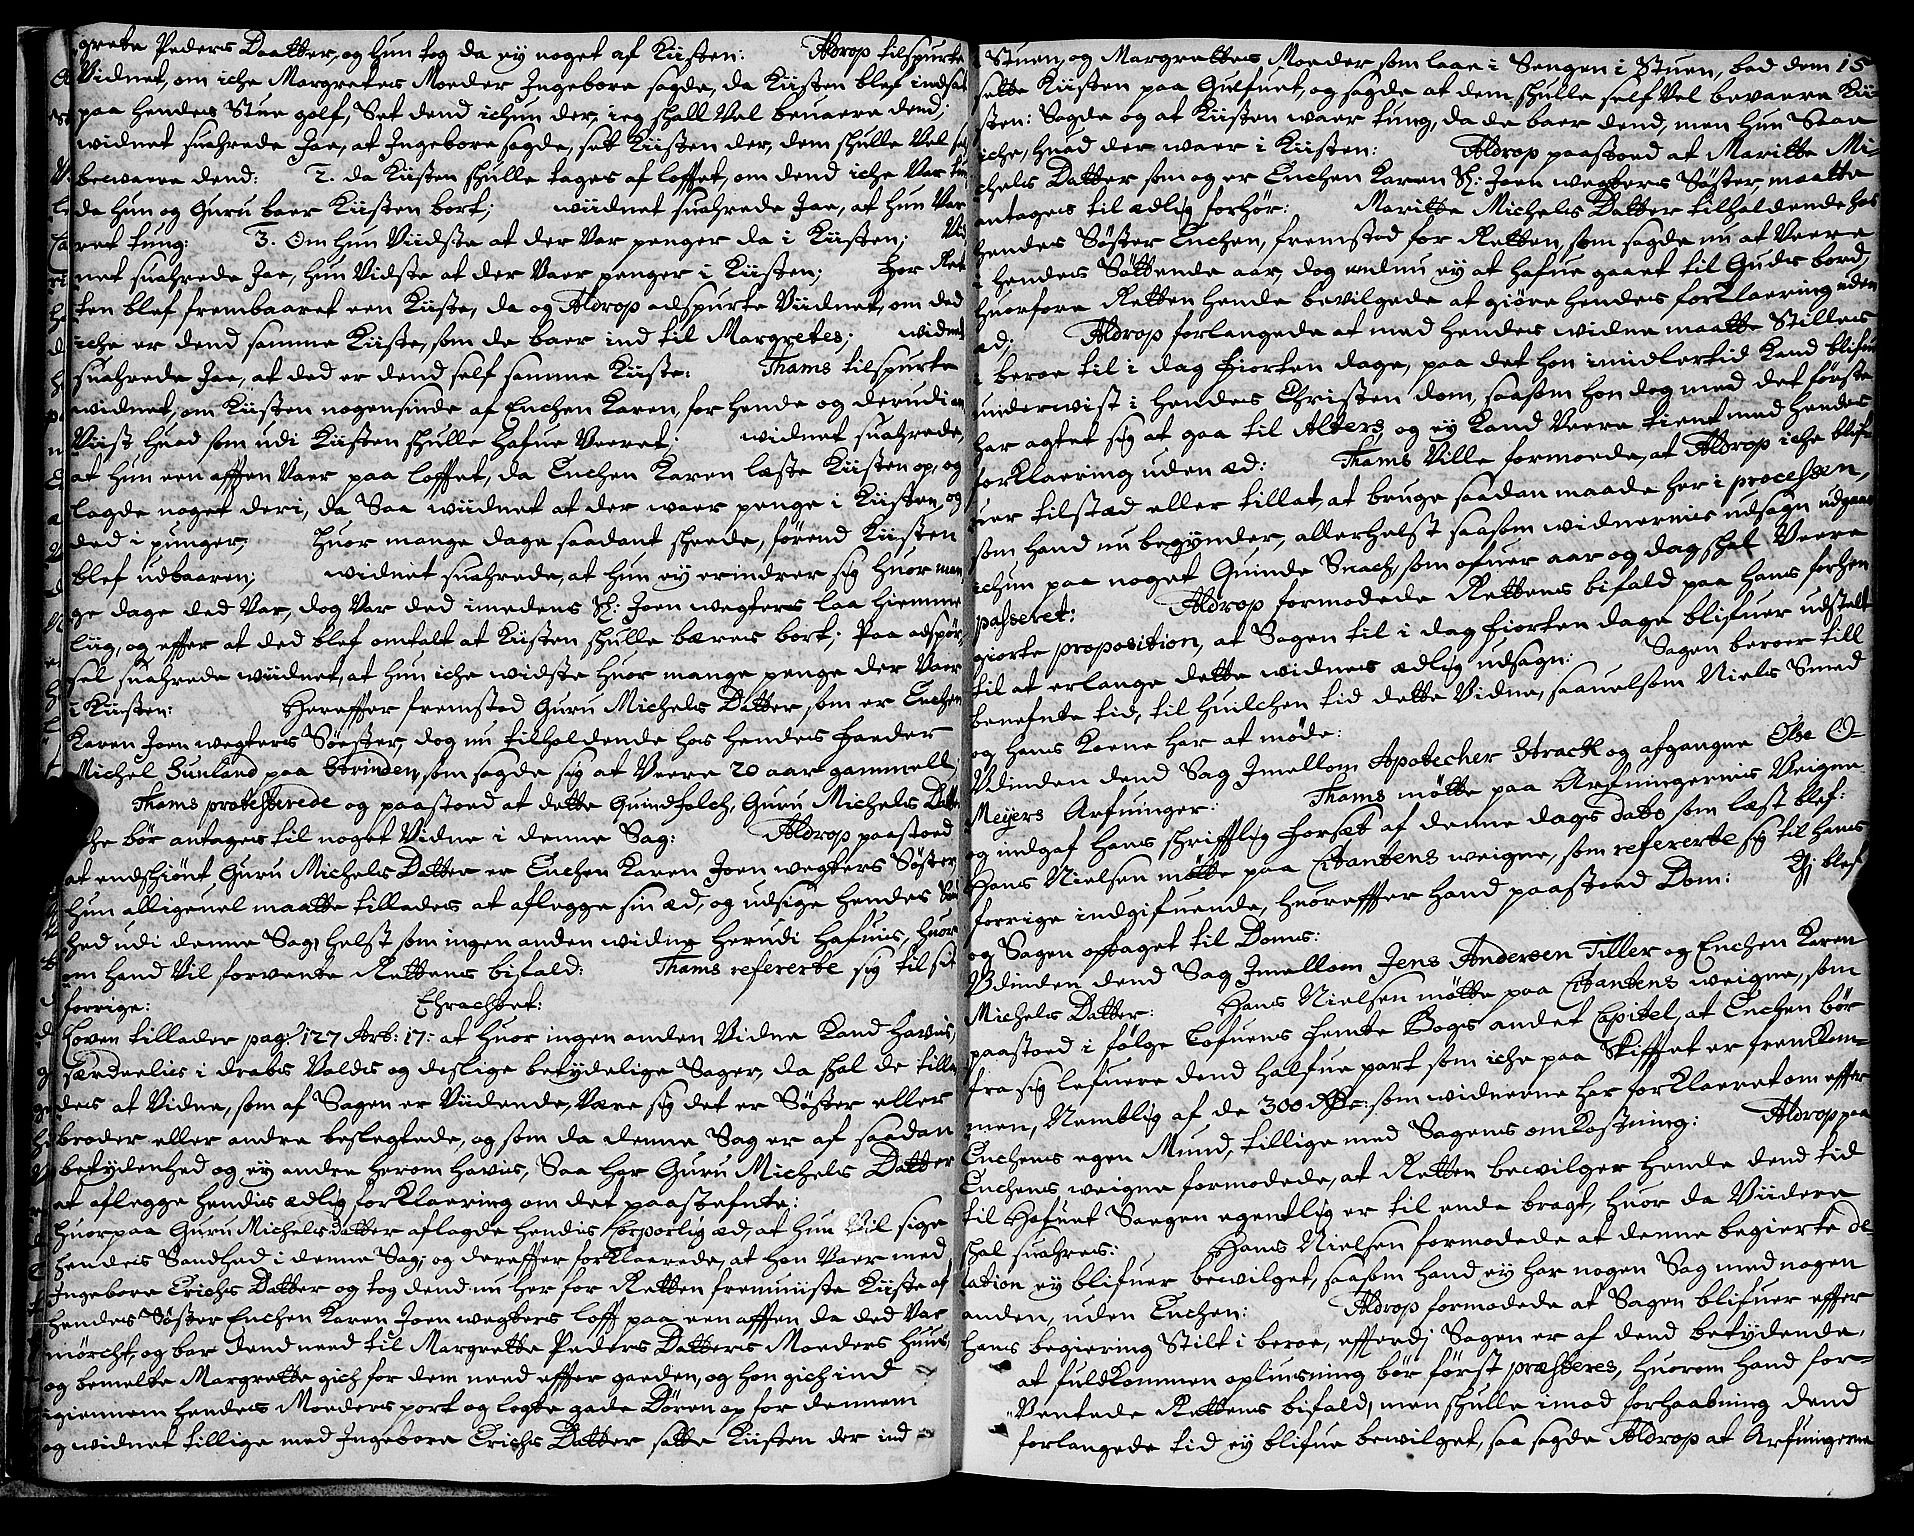 grete Peders Daatter, og hun tog da ey noget af Kiisten: Aldrop tilspurte
Vidnet, om iche Margretes Moeder Ingebore sagde, da Kiisten blef indsat
paa hendes Stue golf, Set dend ichun der, ieg shall Vel bevaere dend;
widnet suahrede Jae, at Ingebore sagde, set Kiisten der, dem shulle Vel
bewaere dend: 2. da Kiisten shulle tages af lofftet, om dend iche Var
da hun og Guru baer Kiisten bort; wiidnet suahrede Jae, at hun Var
ret tung: 3. Om hun Viidste at der Var penger da i Kiisten; Vid
net suahrede Jae, hun Vidste at der Vaer penger i Kiisten; for Ret
ten blef frembaaret een Kiiste, da og Aldrop adspurte Viidnet, om ded
iche er dend samme Kiiste, som de baer ind til Margretes; widnet
suahrede Jae, at ded er dend self samme Kiiste: Thams tilspurte
widnet, om Kiisten nogensinde af Enchen Karen, for hende og derudi
Viist huad som udi Kiisten shulle hafue Veeret; widnet suahrede,
at hun een afften Vaer paa lofftet, da Enchen Karen læste Kiisten op, og
lagde noget deri, da Saa wiidnet at der waer penge i Kiisten og
ded i punger; Huor mange dage saadant sheede, førend Kiisten
blef udbaaren; widnet suahrede, at hun ey erindrer sig huor man
ge dage ded Var, dog Var ded imedens Sl: Joen wegters laa hiemme
liig, og effter at ded blef omtalt at Kiisten shulle bæres bort; Paa adspør
sel suahrede wiidnet, at hun iche widste huor mange penge der Vaer
i Kiisten: Hereffter fremstod Guru Michels Datter som er Enchen
Karen Joen wegters Søster, dog nu tilholdende hos hendes Faeder
Michel Sunland paa Strinden, som sagde sig at Veere 20 aar gammell;
Thams protesterede og paastoed at dette Quindfolch, Guru Michels Datter
iche bør antages til noget Vidne i denne Sag: Aldrop paastoed
at endshiønt Guru Michels Datter er Enchen Karen Joen wegters Søster
hun alligeuel maatte tillades at aflegge sin æd, og udsige hendes
hed udi denne Sag, helst som ingen anden widne herudi hafues, huor
om hand Vil forvente Rettens bifald: Thams refererte sig til sit
forrige: Eragtet:
Loven tillader pag: 127 Art: 17: at huor ingen anden Vidne kand haves,
særdeelis i drabs Valds og deslige betydelige Sager, da shal de tilla
des at Vidne, som af Sagen er Viidende, Være sig det er Søster eller
broder eller andre beslegtede, og som da denne Sag er af saadan
betydenhed og ey andre herom havis, Saa har Guru Michels Datter
at aflegge hendis ædlig forklaering om det paastefnte:
huorpaa Guru Michelsdatter aflagde hendis Corporlig æd, at hun Vil sige
hendis Sandhed i denne Sag; og dereffter forklaerede, at hon Vaer med
Ingebore Erichs Datter og tog dend nu her for Retten fremviiste Kiiste af
hendes Søster Enchen Karen Joen wegters lofft paa een afften da ded Var
mørcht, og bar dend need til Margrette Peders Datters Moeders huus,
og bemelte Margrette gich for dem need effter gaden, og hon gich ind
igiennem hendes Moeders port og logte gade Døren op for dennem
og widnet tillige med Ingebore Erichs Datter satte Kiisten der ind
Stuen, og Margrettes Moeder som laae i Sengen i Stuen, bad dem 15
sette Kiisten paa Gulfuet, og sagde at dem shulle self Vel bevaere Kii
sten: Sagde og at Kiisten waer tung, da de baer dend, men hun Saae
iche, huad der waer i Kiisten: Aldrop paastoed at Maritte Mi-
chels Datter som og er Enchen Karen Sl: Joen wegters Søster, maatte
antages til ædlig forhør: Maritte Michels Datter tilholdende hos
hendes Søster Enchen, fremstod for Retten, som sagde nu at Veere
i hendes Søttende aar, dog endnu ey at hafue gaaet til Guds bord,
huorfore Retten hende bevilgede at giøre hendes forklaering uden
æd; Aldrop forlangede at med hendes widne maatte Stilles
i beroe til i dag fiorten dage, paa det hon imidlertid kand blifue
underwist i hendes Christen dom, saasom hon dog med det første
har agtet sig at gaa til Alters, og ey kand Veere tient med hendes
forklaering uden æd: Thams Ville formoede, at Aldrop iche blif-
uer tilsted eller tillat, at bruge saadan maade her i processen,
som hand nu begynder, allerhelst saasom widnernis udsagn udgaaer
ichun paa noget Quinde Snach, som ofuer aar og dag shal Veere
passeret: Aldrop formodede Rettens bifald paa hans forhen
giorte proposition, at Sagen til i dag fiorten dage blifuer udstelt
til at erlange dette widnes ædlig udsagn: Sagen beroer till
benefnte tid, til huilchen tid dette Vidne, saauelsom Niels Smed
og hans Koene har at møde:
Udinden dend Sag Imellom Apotecher Strack og afgangne Olse O-
Meyers Arfuinger: Thams møtte paa Arfuingernis Veigne
og indgaf hans shrifftlig forsæt af denne dags dato som læst blef:
Hans Nielsen møtte paa Citantens weigne, som refererte sig til hans
forrige indgifuende, huoreffter hand paastoed Dom: Dj blef
og Sagen optaget til Doms:
Udinden dend Sag Imellom Jens Andersen Tiller og Enchen Karen
Michels Datter: Hans Nielsen møtte paa Citantens weigne, som
paastoed i følge Lofuens femte Bogs andet Capitel, at Enchen bør
fra sig lefuere dend halfue part som iche paa Skifftet er fremkom-
men, Nemblig af de 300 Rdr: som widnerne har forklaeret om effter
Enchens egen Mund, tillige med Sagens omkostning: Aldrop paa
Enchens weigne formodede, at Retten bevilger hende dend tid
til Hafuet Saegen egentlig er til ende bragt, huor da Viidere
shal suahres: Hans Nielsen formodede at denne begierte de-
lation ey blifuer bewilget, saasom hand ey har nogen Sag med nogen
anden, uden Enchen: Aldrop formodede at Sagen blifuer effter
hans begiering Stilt i beroe, efftersj Sagen er af dend betydende,
at fuldkommen oplysning bør først præsteres, huorom hand for-
Ventede Rettens bifald, men shulle imod forhaabning dend
forlangede tid ey blifue bewilget, saa sagde Aldrop at Arfuingerne